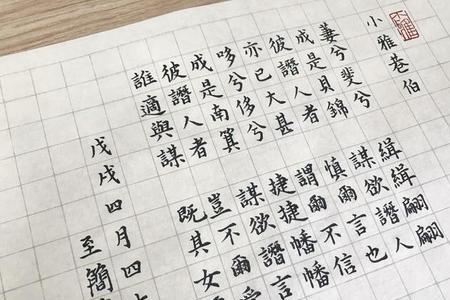 小雅巷伯
萋兮斐兮
成是貝錦
彼譖人者
亦已大甚
哆兮侈兮
成是南箕
彼譖人者
誰適與謀
緝緝翩翩
謀欲譖人
慎爾言也
謂爾不信
捷捷幡幡
謀欲譖言
豈不爾受
既其女
戊戌四月四
至簡